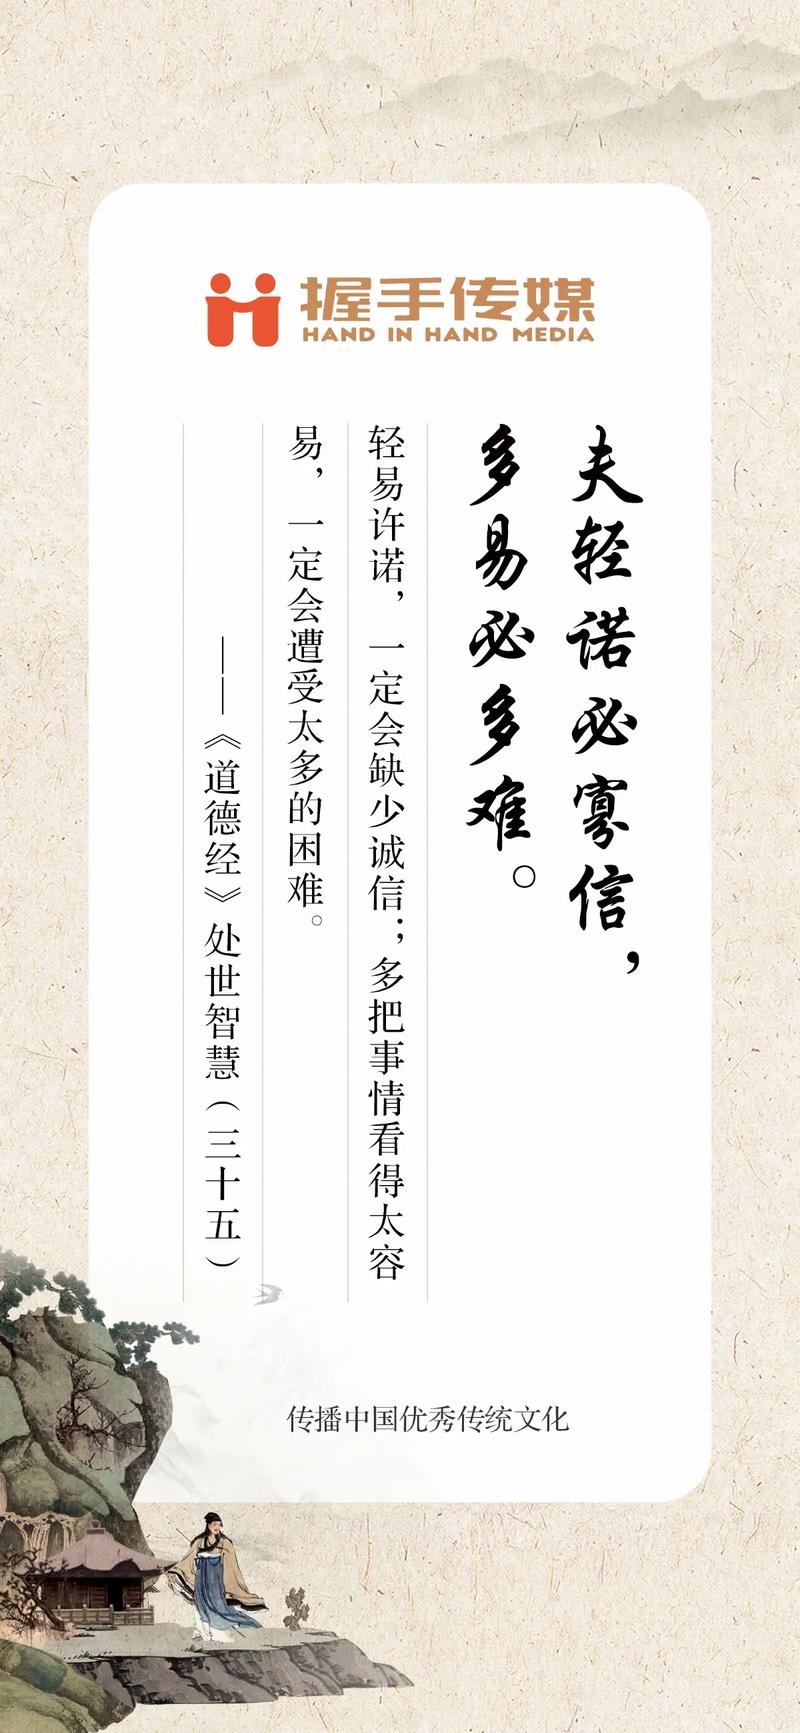 握手传媒
HAND IN HAND MEDIA
夫轻诺必寡信，
多易必多难。
轻易许诺，一定会缺少诚信；多把事情看得太容
易，一定会遭受太多的困难。
——《道德经》处世智慧（三十五）
传播中国优秀传统文化